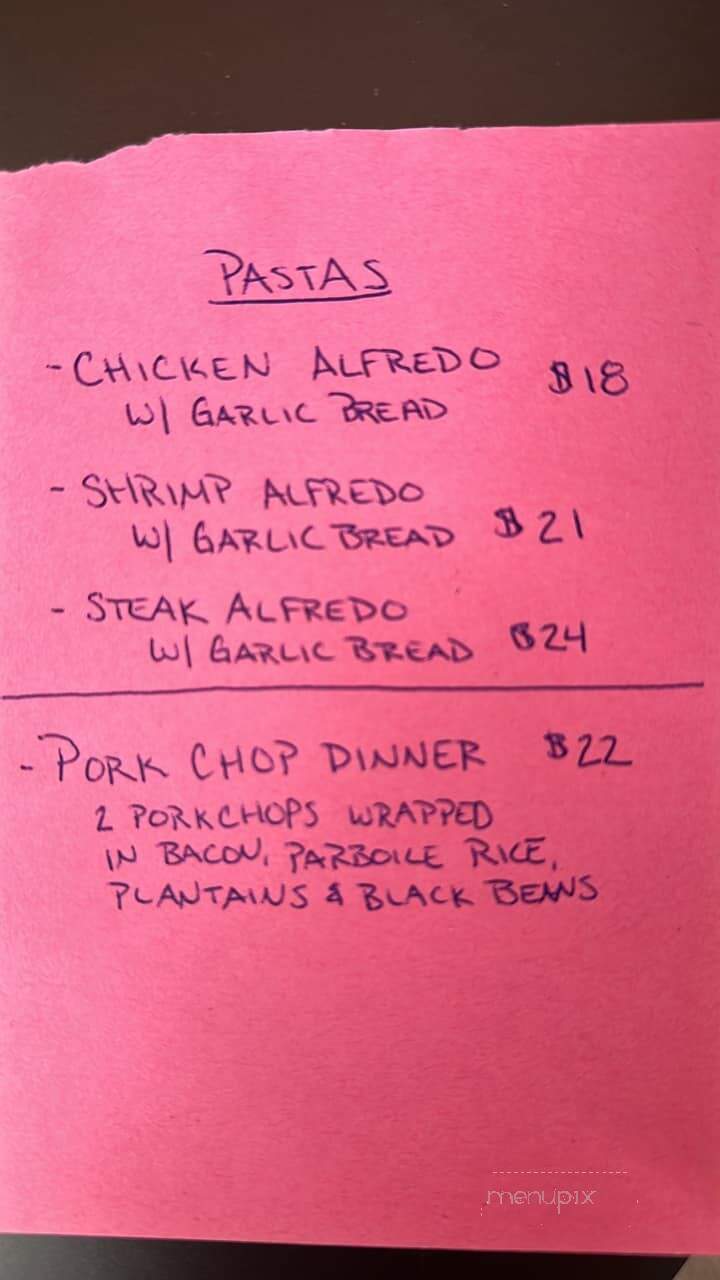 PASTAS
- CHICKEN ALFREDO $18
W/ GARLIC BREAD
- SHRIMP ALFREDO
W/ GARLIC BREAD $21
- STEAK ALFREDO
W/ GARLIC BREAD $24
- PORK CHOP DINNER $22
2 PORKCHOPS WRAPPED
IN BACON, PARBOILE RICE,
PLANTAINS & BLACK BEANS
menupix